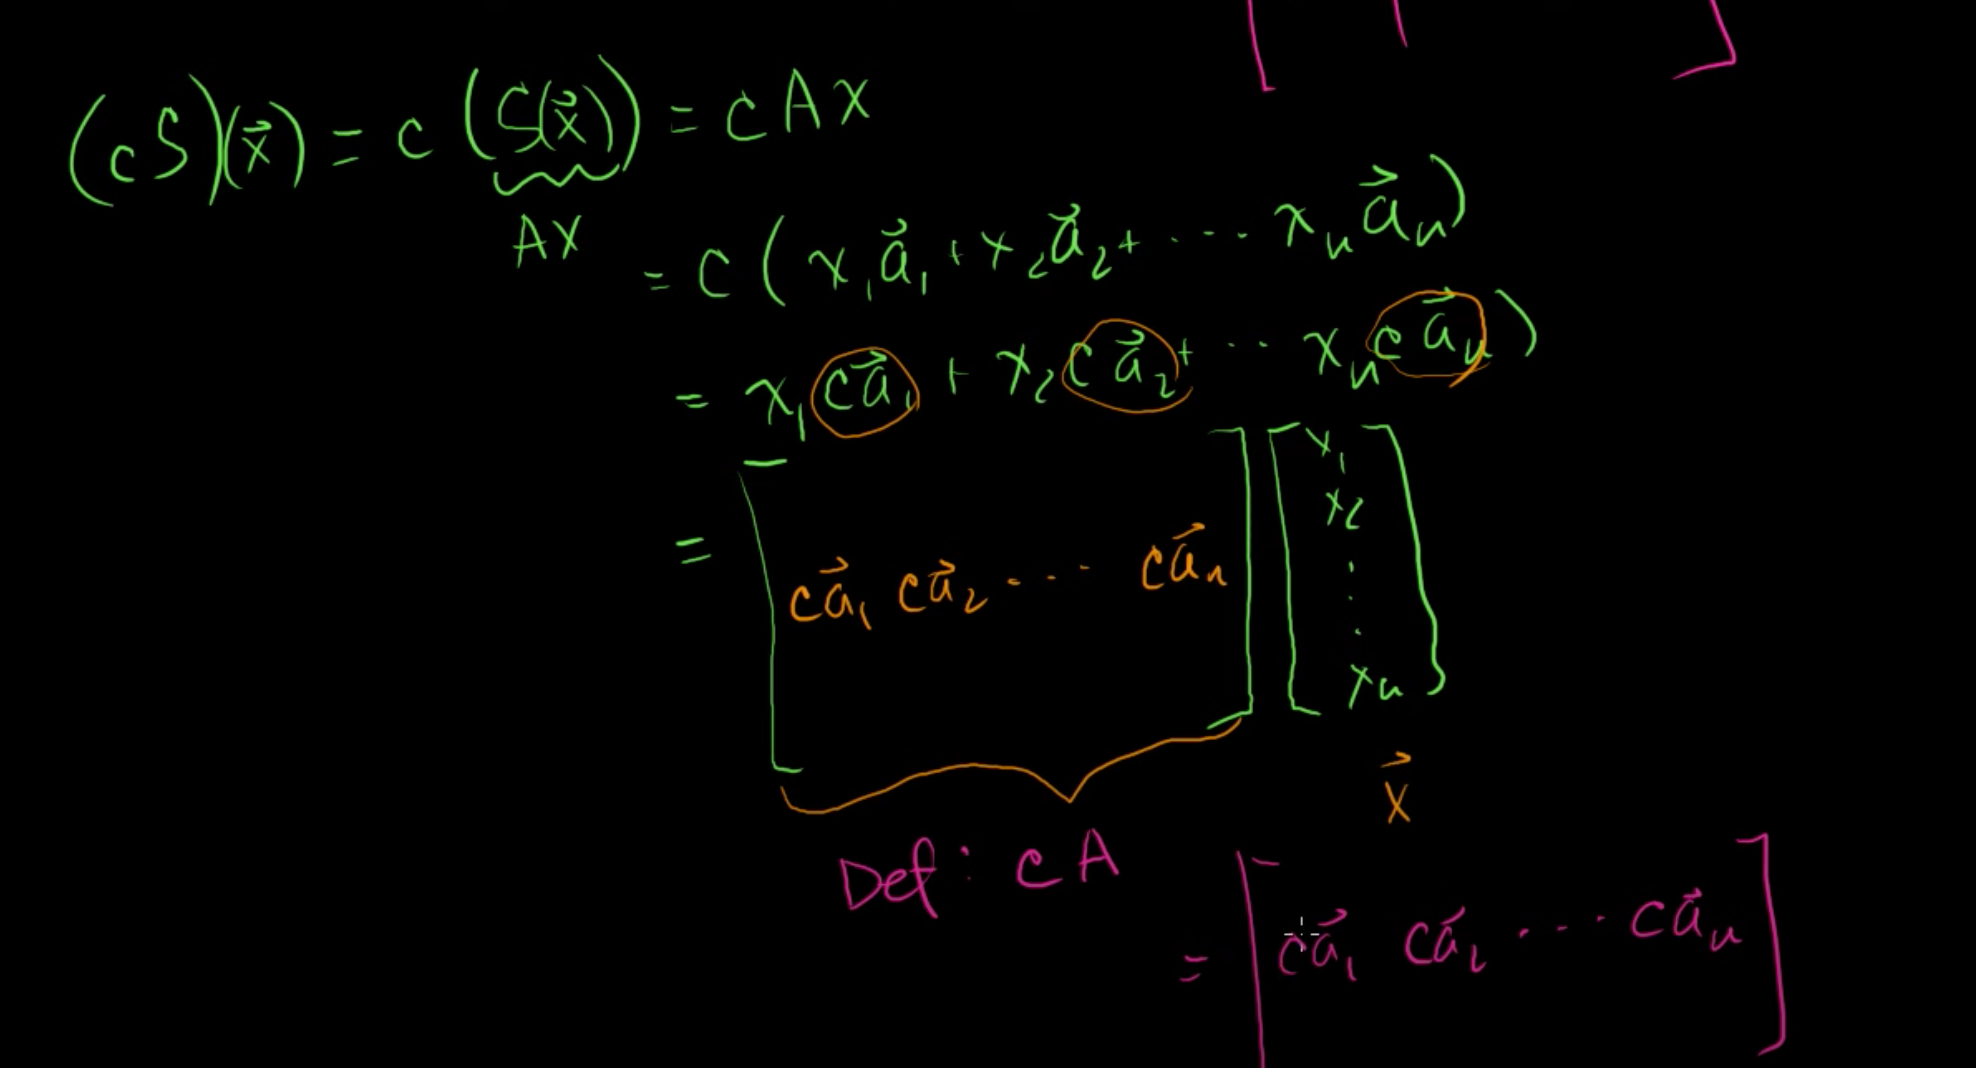 (cS)(x⃗) = c(S(x⃗)) = cAx
Ax
= c(x₁a⃗₁ + x₂a⃗₂ + ····· xₙa⃗ₙ)
= x₁ca⃗₁ + x₂ca⃗₂ + ·· xₙca⃗ₙ)
= [ca⃗₁ ca⃗₂ ···· ca⃗ₙ] [x₁
x₂
⋮
xₙ]
x⃗
Def: cA
= [ca⃗₁ ca⃗₂ ···· ca⃗ₙ]